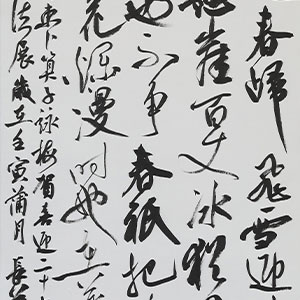 春歸飛雪迎
崖百丈冰猶
也不争春祇把
花爛漫時她在叢
東卜算子詠梅賀喜迎二十
法展歲在壬寅蒲月長